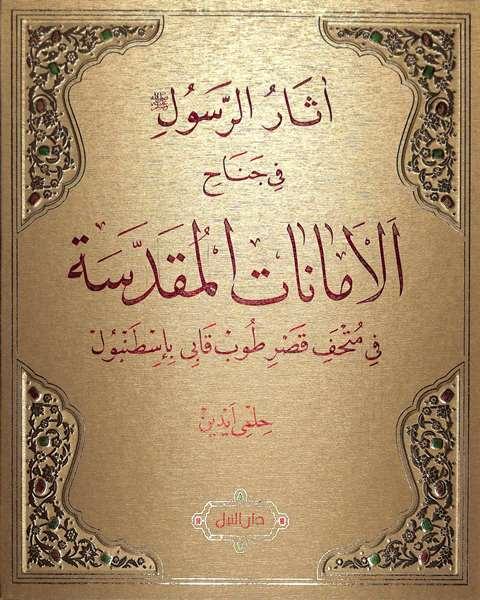 آثَارُ الرَّسُولِ ﷺ
فِي جَنَاحِ
الْأَمَانَاتِ الْمُقَدَّسَةِ
فِي مُتْحَفِ قَصْرِ طُوبْ قَابِي بِإِسْطَنْبُولْ
حِلْمِي آيْدِينْ
دار النيل